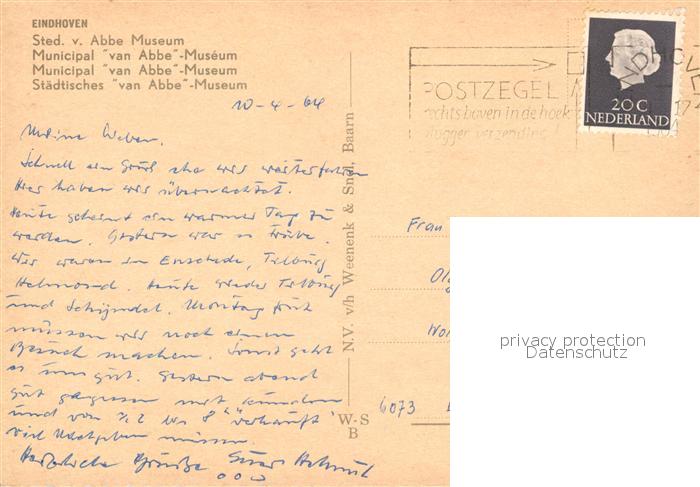 EINDHOVEN
Sted. v. Abbe Museum
Municipal "van Abbe"-Muséum
Municipal "van Abbe"-Museum
Städtisches "van Abbe"-Museum
10-4-64
Meine Lieben,
Schnell ein Gruß ehe wir weiterfahren
Hier haben wir übernachtet.
Heute scheint ein warmer Tag zu
werden. Gestern war es trübe.
Wir waren in Enschede, Tilburg
Helmond. Heute wieder Tilburg
und Schijndel. Montag früh
müssen wir noch einen
Besuch machen. Sonst geht
es uns gut. Gestern abend
gut gegessen mit Kunden
und von 1/2 2 bis 8 "verkauft"
viel Nachgeben müssen.
Herzliche Grüße Euer Helmut
N.V. v/h Weenenk & Snel, Baarn
W-S
B
POSTZEGEL
rechts boven in de hoek
vlugger verzending!
EINDHOVEN
20 C
NEDERLAND
Frau
6073
privacy protection
Datenschutz